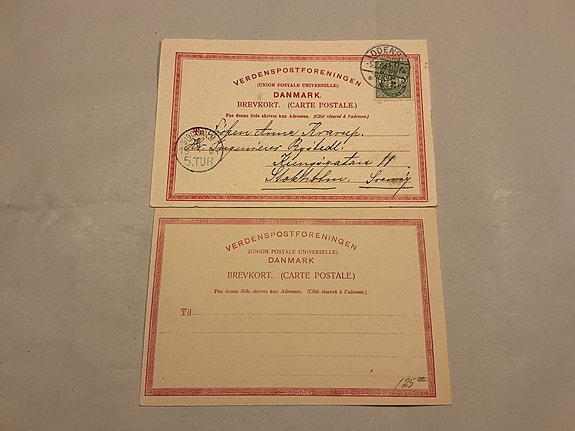 VERDENSPOSTFORENINGEN
(UNION POSTALE UNIVERSELLE)
DANMARK.
BREVKORT. (CARTE POSTALE.)
Paa denne Side skrives kun Adressen. (Côté réservé à l'adresse.)
ODENSE
Til Frøken Anna Krarup.
Ingeniør
Kungsgatan 11
Stokholm. Sverig
5.TUR
VERDENSPOSTFORENINGEN
(UNION POSTALE UNIVERSELLE).
DANMARK
BREVKORT. (CARTE POSTALE.)
Paa denne Side skrives kun Adressen. (Côté réservé à l'adresse.)
Til
125 00